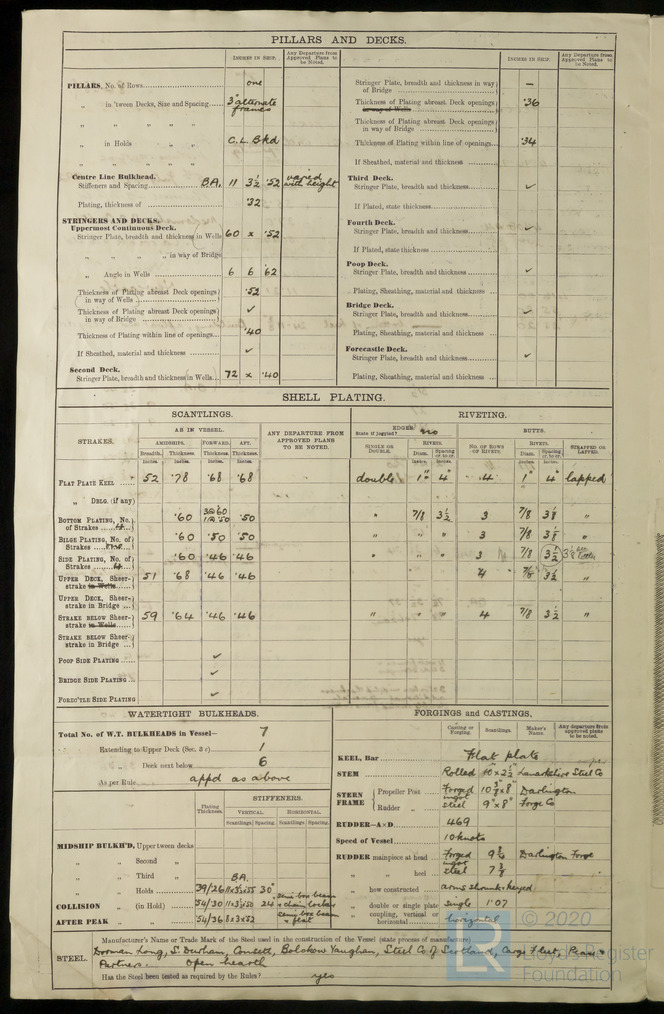 PILLARS AND DECKS.
INCHES IN SHIP.
Any Departure from Approved Plans to be Noted.
INCHES IN SHIP.
Any Departure from Approved Plans to be Noted.
PILLARS, No. of Rows one
„ in 'tween Decks, Size and Spacing 3" alternate frames
„ „ „ „
„ in Holds „ „ C.L. Bkd
„ „ „ „
Centre Line Bulkhead.
Stiffeners and Spacing B.A. 11 3½ .52 varied with height
Plating, thickness of .32
STRINGERS AND DECKS.
Uppermost Continuous Deck.
Stringer Plate, breadth and thickness in Wells 60 x .52
„ „ „ „ in way of Bridge
„ Angle in Wells 6 6 .62
Thickness of Plating abreast Deck openings in way of Wells .52
Thickness of Plating abreast Deck openings in way of Bridge ✓
Thickness of Plating within line of openings .40
If Sheathed, material and thickness ✓
Second Deck.
Stringer Plate, breadth and thickness in Wells 72 x .40
Stringer Plate, breadth and thickness in way of Bridge —
Thickness of Plating abreast Deck openings in way of Wells .36
Thickness of Plating abreast Deck openings in way of Bridge
Thickness of Plating within line of openings .34
If Sheathed, material and thickness
Third Deck.
Stringer Plate, breadth and thickness ✓
If Plated, state thickness
Fourth Deck.
Stringer Plate, breadth and thickness ✓
If Plated, state thickness
Poop Deck.
Stringer Plate, breadth and thickness ✓
Plating, Sheathing, material and thickness
Bridge Deck.
Stringer Plate, breadth and thickness ✓
Plating, Sheathing, material and thickness
Forecastle Deck.
Stringer Plate, breadth and thickness ✓
Plating, Sheathing, material and thickness
SHELL PLATING.
SCANTLINGS.
RIVETING.
STRAKES.
AS IN VESSEL.
AMIDSHIPS. FORWARD. AFT.
Breadth. Thickness. Thickness. Thickness.
Inches. Inches. Inches. Inches.
ANY DEPARTURE FROM APPROVED PLANS TO BE NOTED.
EDGES
State if joggled? no
SINGLE OR DOUBLE.
RIVETS.
Diam. Spacing cr. to cr.
Inches. Inches.
BUTTS.
NO. OF ROWS OF RIVETS.
RIVETS.
Diam. Spacing cr. to cr.
Inches. Inches.
STRAPPED OR LAPPED.
FLAT PLATE KEEL 52 .78 .68 .68 double 1" 4" 4 1" 4" lapped
„ DBLG. (if any)
BOTTOM PLATING, No. of Strakes 4 .60 .50 „ 7/8 3½ 3 7/8 3⅛ „
BILGE PLATING, No. of Strakes .60 .50 .50 „ „ „ 3 7/8 3⅛ „
SIDE PLATING, No. of Strakes 4 .60 .46 .46 „ „ „ 3 7/8 3½ 3⅛
UPPER DECK, Sheerstrake in Wells 51 .68 .46 .46 4 7/8 3½ „
UPPER DECK, Sheerstrake in Bridge
STRAKE BELOW Sheerstrake in Wells 59 .64 .46 .46 „ „ „ 4 7/8 3½ „
STRAKE BELOW Sheerstrake in Bridge
POOP SIDE PLATING ✓
BRIDGE SIDE PLATING ✓
FORE'C'TLE SIDE PLATING ✓
WATERTIGHT BULKHEADS.
Total No. of W.T. BULKHEADS in Vessel— 7
Extending to Upper Deck (Sec. 3 c) 1
„ Deck next below 6
As per Rule appd as above
Plating Thickness.
STIFFENERS.
VERTICAL. HORIZONTAL.
Scantlings. Spacing. Scantlings. Spacing.
MIDSHIP BULKH'D, Upper tween decks
„ „ Second „
„ „ Third „ B.A.
„ „ Holds .39/.26 30"
COLLISION „ (in Hold) .54/.30 24 semi box beam & chain locker
AFTER PEAK „ „ .54/.36 8x3x.52 semi box beam & flat
FORGINGS AND CASTINGS.
Casting or Forging. Scantlings. Maker's Name. Any departure from approved plans to be noted.
KEEL, Bar Flat plate
STEM Rolled 10" x 2½" Lanarkshire Steel Co
STERN FRAME
Propeller Post Forged ingot steel Darlington Forge Co
Rudder „ 9" x 8"
RUDDER—A×D 469
Speed of Vessel 10 knots
RUDDER mainpiece at head Forged ingot steel Darlington Forge
„ „ heel
„ how constructed arms shrunk & keyed
„ double or single plate single 1.07
„ coupling, vertical or horizontal horizontal
STEEL.
Manufacturer's Name or Trade Mark of the Steel used in the construction of the Vessel (state process of manufacture)
Dorman Long, S. Durham, Consett, Bolckow Vaughan, Steel Co of Scotland, Cargo Fleet, Pease &
Partners. Open hearth
Has the Steel been tested as required by the Rules? yes
© 2020
LR
Lloyd's Register
Foundation